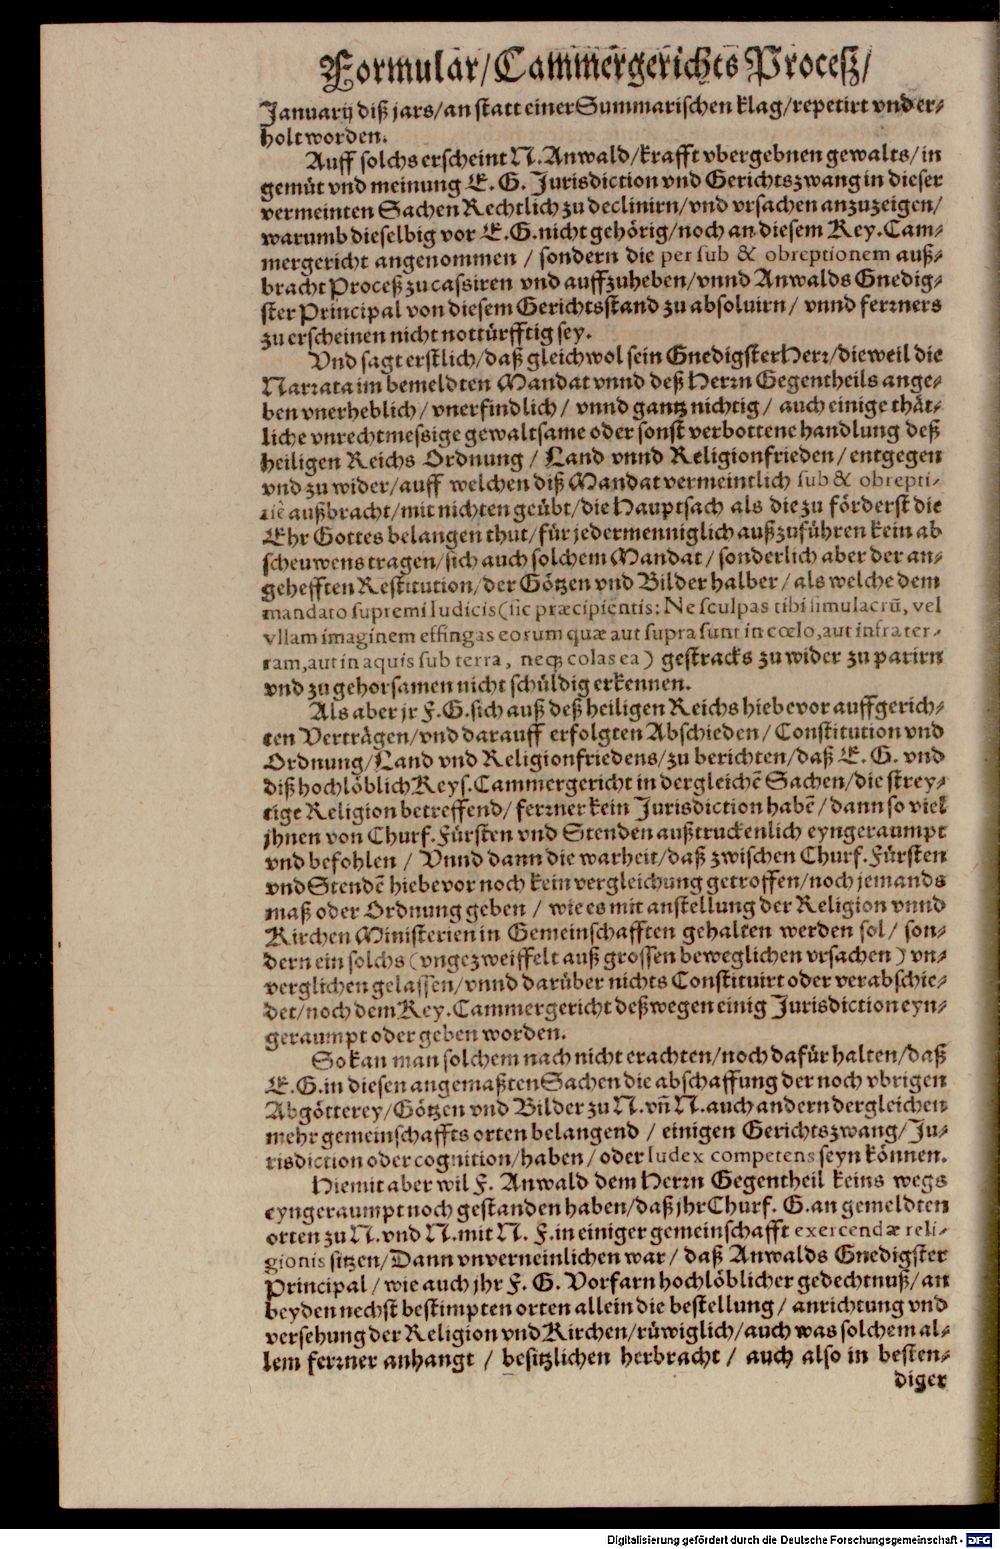 Formular/Cammergerichts Proceß/
Januarij diß jars/an statt einer Summarischen klag/repetirt vnd er-
holt worden.
Auff solchs erscheint N. Anwald/krafft vbergebnen gewalts/in
gemüt vnd meinung E. G. Jurisdiction vnd Gerichtszwang in dieser
vermeinten Sachen Rechtlich zu declinirn/vnd vrsachen anzuzeigen/
warumb dieselbig vor E. G. nicht gehörig/noch an diesem Key. Cam-
mergericht angenommen / sondern die per sub & obreptionem auß-
bracht Proceß zu cassiren vnd auffzuheben/vnnd Anwalds Gnedig-
ster Principal von diesem Gerichtsstand zu absoluirn/ vnnd ferrners
zu erscheinen nicht nottürfftig sey.
Vnd sagt erstlich/daß gleichwol sein Gnedigster Herr/dieweil die
Narrata im bemeldten Mandat vnnd deß Herrn Gegentheils ange-
ben vnerheblich/ vnerfindlich / vnnd gantz nichtig / auch einige thät-
liche vnrechtmessige gewaltsame oder sonst verbottene handlung deß
heiligen Reichs Ordnung / Land vnnd Religionfrieden/ entgegen
vnd zu wider/auff welchen diß Mandat vermeintlich sub & obrepti-
tiè außbracht/mit nichten geübt/die Hauptsach als die zu förderst die
Ehr Gottes belangen thut/für jedermenniglich außzuführen kein ab
scheuwens tragen/sich auch solchem Mandat / sonderlich aber der an-
gehefften Restitution/der Götzen vnd Bilder halber / als welche dem
mandato supremi Iudicis (sic præcipientis: Ne sculpas tibi simulacrũ, vel
vllam imaginem effingas eorum quæ aut supra sunt in cœlo, aut infra ter-
ram, aut in aquis sub terra, neqꝫ colas ea) gestracks zu wider zu parirn
vnd zu gehorsamen nicht schüldig erkennen.
Als aber jr F. G. sich auß deß heiligen Reichs hiebevor auffgerich-
ten Verträgen/vnd darauff erfolgten Abschieden/ Constitution vnd
Ordnung/Land vnd Religionfriedens/zu berichten/daß E. G. vnd
diß hochlöblich Keys. Cammergericht in dergleichẽ Sachen/die strey-
tige Religion betreffend/ ferrner kein Jurisdiction habẽ/dann so viel
jhnen von Churf. Fürsten vnd Stenden außtruckenlich eyngeraumpt
vnd befohlen / Vnnd dann die warheit/daß zwischen Churf. Fürsten
vnd Stendẽ hiebevor noch kein vergleichung getroffen/noch jemands
maß oder Ordnung geben / wie es mit anstellung der Religion vnnd
Kirchen Ministerien in Gemeinschafften gehalten werden sol/ son-
dern ein solchs (vngezweiffelt auß grossen beweglichen vrsachen) vn-
verglichen gelassen/vnnd darüber nichts Constituirt oder verabschie-
det/noch dem Key. Cammergericht deßwegen einig Jurisdiction eyn-
geraumpt oder geben worden.
So kan man solchem nach nicht erachten/noch dafür halten/daß
E. G. in diesen angemaßten Sachen die abschaffung der noch vbrigen
Abgötterey/Götzen vnd Bilder zu N. vñ N. auch andern dergleichen
mehr gemeinschaffts orten belangend / einigen Gerichtszwang/Ju-
risdiction oder cognition/haben/ oder Iudex competens seyn können.
Hiemit aber wil F. Anwald dem Herrn Gegentheil keins wegs
eyngeraumpt noch gestanden haben/daß jhr Churf. G. an gemeldten
orten zu N. vnd N. mit N. F. in einiger gemeinschafft exercendæ reli-
gionis sitzen/Dann vnverneinlichen war/ daß Anwalds Gnedigster
Principal/ wie auch jhr F. G. Vorfarn hochlöblicher gedechtnuß/ an
beyden nechst bestimpten orten allein die bestellung/ anrichtung vnd
versehung der Religion vnd Kirchen/rüwiglich/auch was solchem al-
lem ferrner anhangt / besitzlichen herbracht / auch also in besten-
diger
Digitalisierung gefördert durch die Deutsche Forschungsgemeinschaft - DFG